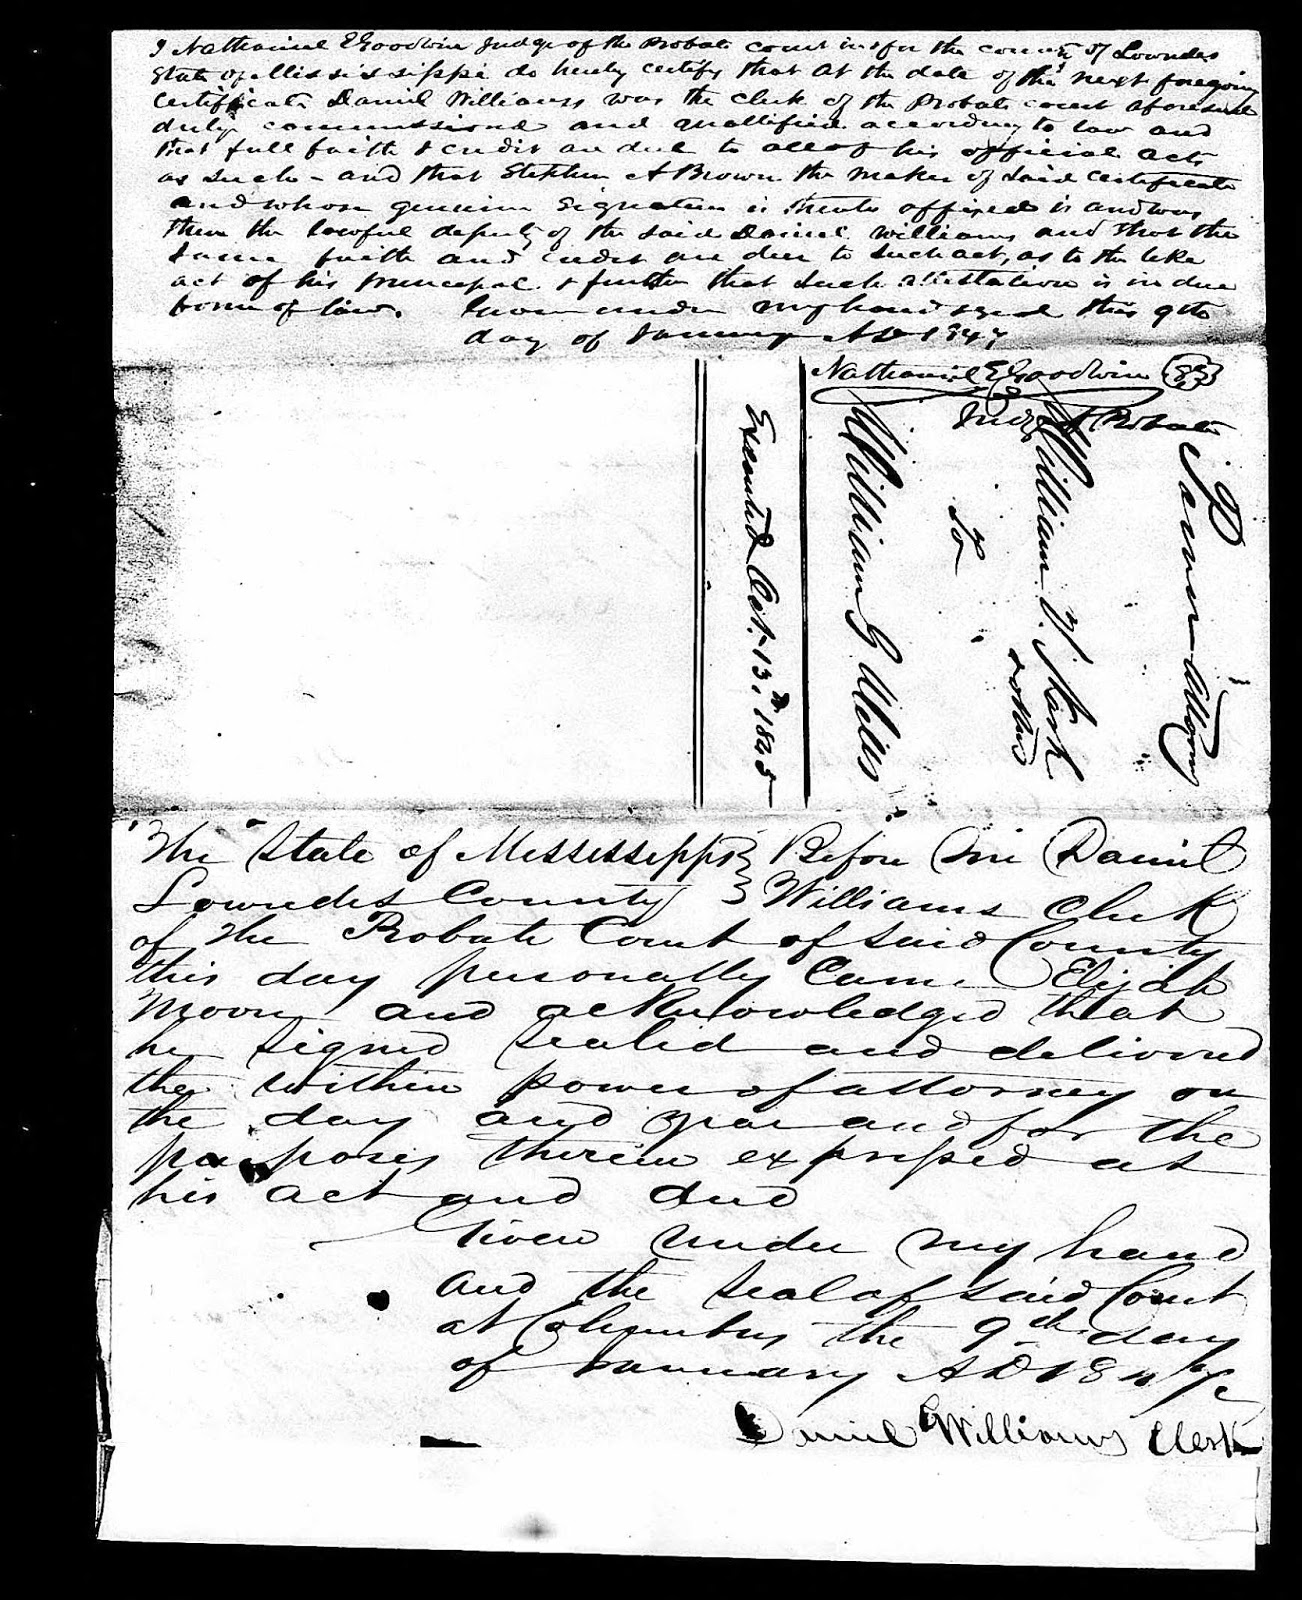 I Nathaniel E Goodwin Judge of the Probate court in & for the county of Lowndes
State of Mississippi do hereby certify that at the date of the next foregoing
certificate Daniel Williams was the clerk of the Probate court aforesaid
duly commissioned and quallified according to law and
that full faith & credit are due to all of his official acts
as such - and that Stephen A Brown the maker of said certificate
and whose genuine signature is thereto affixed is and was
then the lawful deputy of the said Daniel Williams and that the
same faith and credit are due to such act, as to the like
act of his principal & further that such attestation is in due
form of law. Given under my hand & seal this 9th
day of January AD 1847
Nathaniel E Goodwin
Judge of Probate
Power Attorney
William W. Mark
& others
To
William G Wells
Executed Oct. 13th 1845
The State of Mississippi } Before Me Daniel
Lowndes County } Williams Clerk
of the Probate Court of said County
this day personally Came Elijah
Moore and acknowledged that
he signed sealed and delivered
the within power of attorney on
the day and year and for the
purposes therein expressed as
his act and deed
Given under my hand
and the seal of said Court
at Columbus the 9th day
of January AD 1847
Daniel Williams Clerk